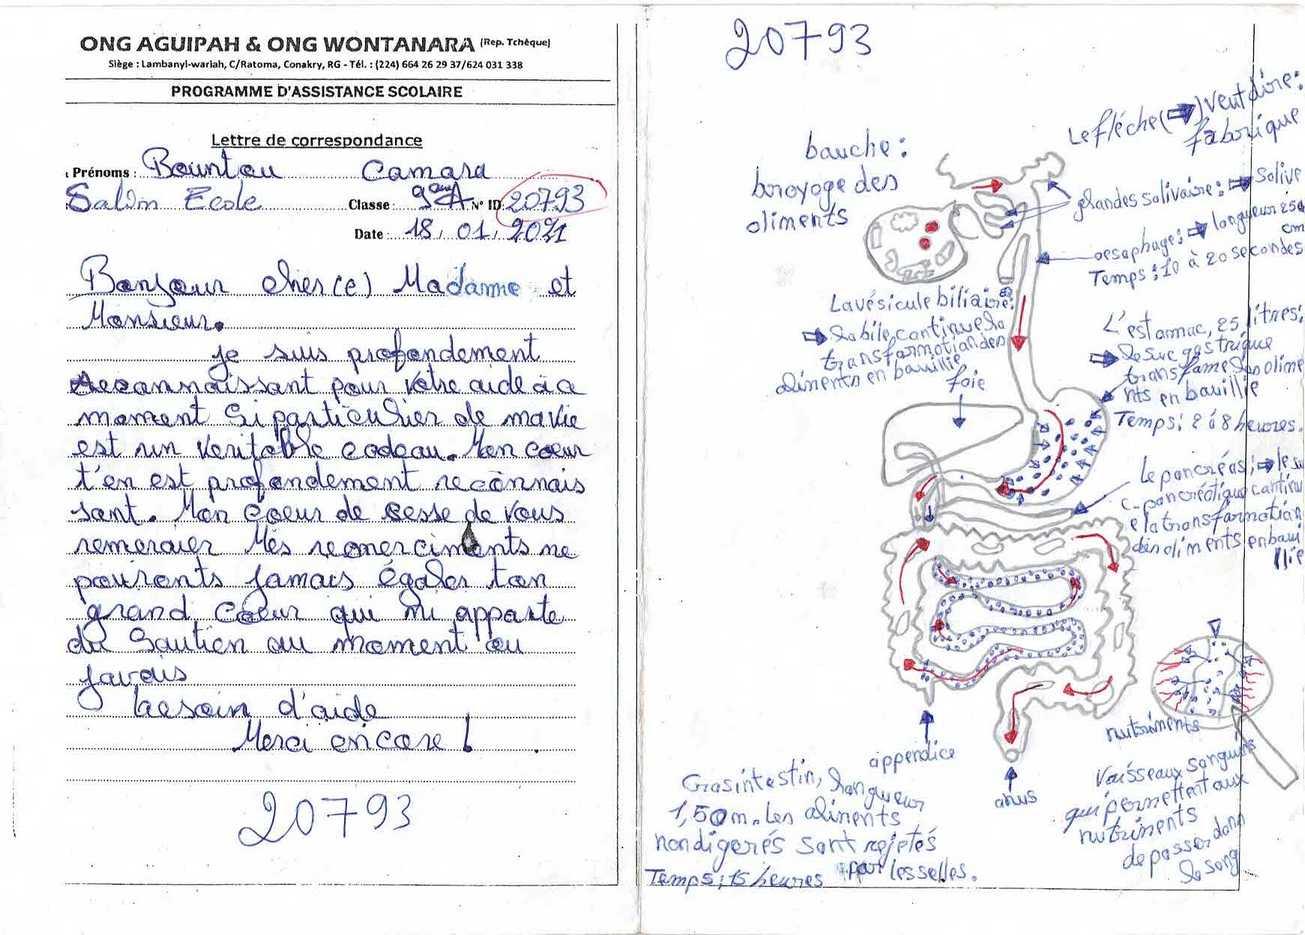 ONG AGUIPAH & ONG WONTANARA (Rep. Tchèque)
Siège : Lambanyi-wariah, C/Ratoma, Conakry, RG - Tél. : (224) 664 26 29 37/624 031 338
PROGRAMME D'ASSISTANCE SCOLAIRE
Lettre de correspondance
Prénoms : Bountou Camara
Salim Ecole Classe : 9èmeA N° ID 20793
Date : 18, 01, 2021
Bonjour cher(e) Madame et
Monsieur.
je suis profondement
reconnaissant pour votre aide à a
moment si particulier de ma vie
est un veritable cadeau. Mon cœur
t'en est profondement reconnais
sant. Mon coeur de cesse de vous
remercier Mes remerciments ne
pourronts jamais égaler ton
grand coeur qui m'a apporte
du Soutien au moment ou
javais
besoin d'aide
Merci encore !
20793
20793
bauche :
broyage des
aliments
La fléche (➡) veut dire :
fabrique
glandes salivaire : ➡ salive
oesaphage : ➡ longueur 25
cm
Temps : 10 à 20 secondes
La vésicule biliaire :
➡ la bile continue la
transformation des
aliments en bouillie
foie
L'estomac, 25 litres :
➡ le suc gastrique
transforme les alime
nts en bouillie
Temps : 2 à 8 heures.
Le pancréas : ➡ le su
c-pancréatique continu
e la transformation
des aliments en boui
llie
appendice
anus
nutriments
Vaisseaux sanguins
qui permettent aux
nutriments
de passer dans
le sang
Gros intestin, longueur
1,50 m. Les aliments
non digerés sont rejetés
par les selles.
Temps : 15 heures